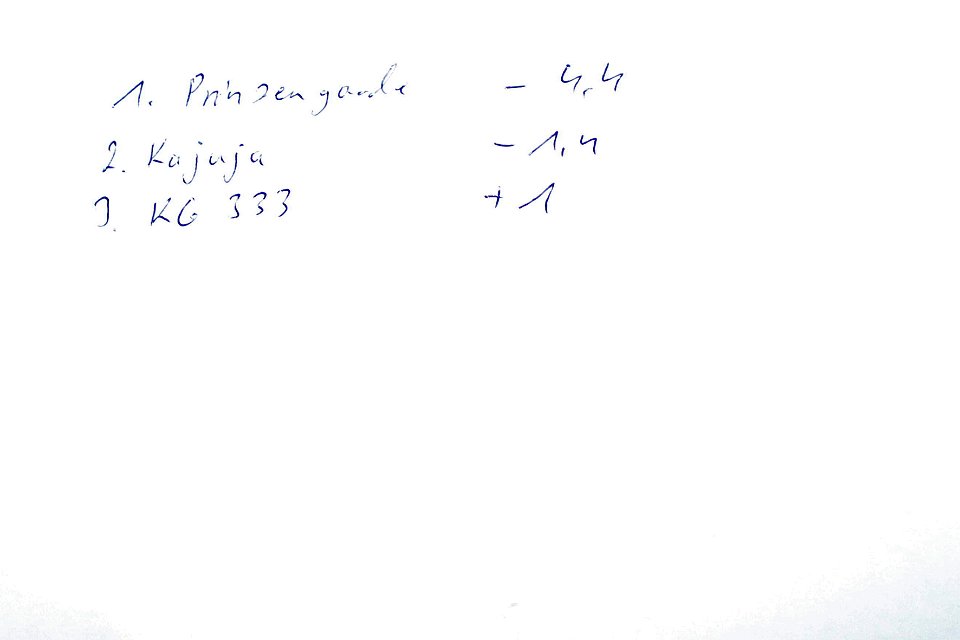 1. Prinzengarde - 4,4
2. Kajuja - 1,4
3. KG 333 + 1